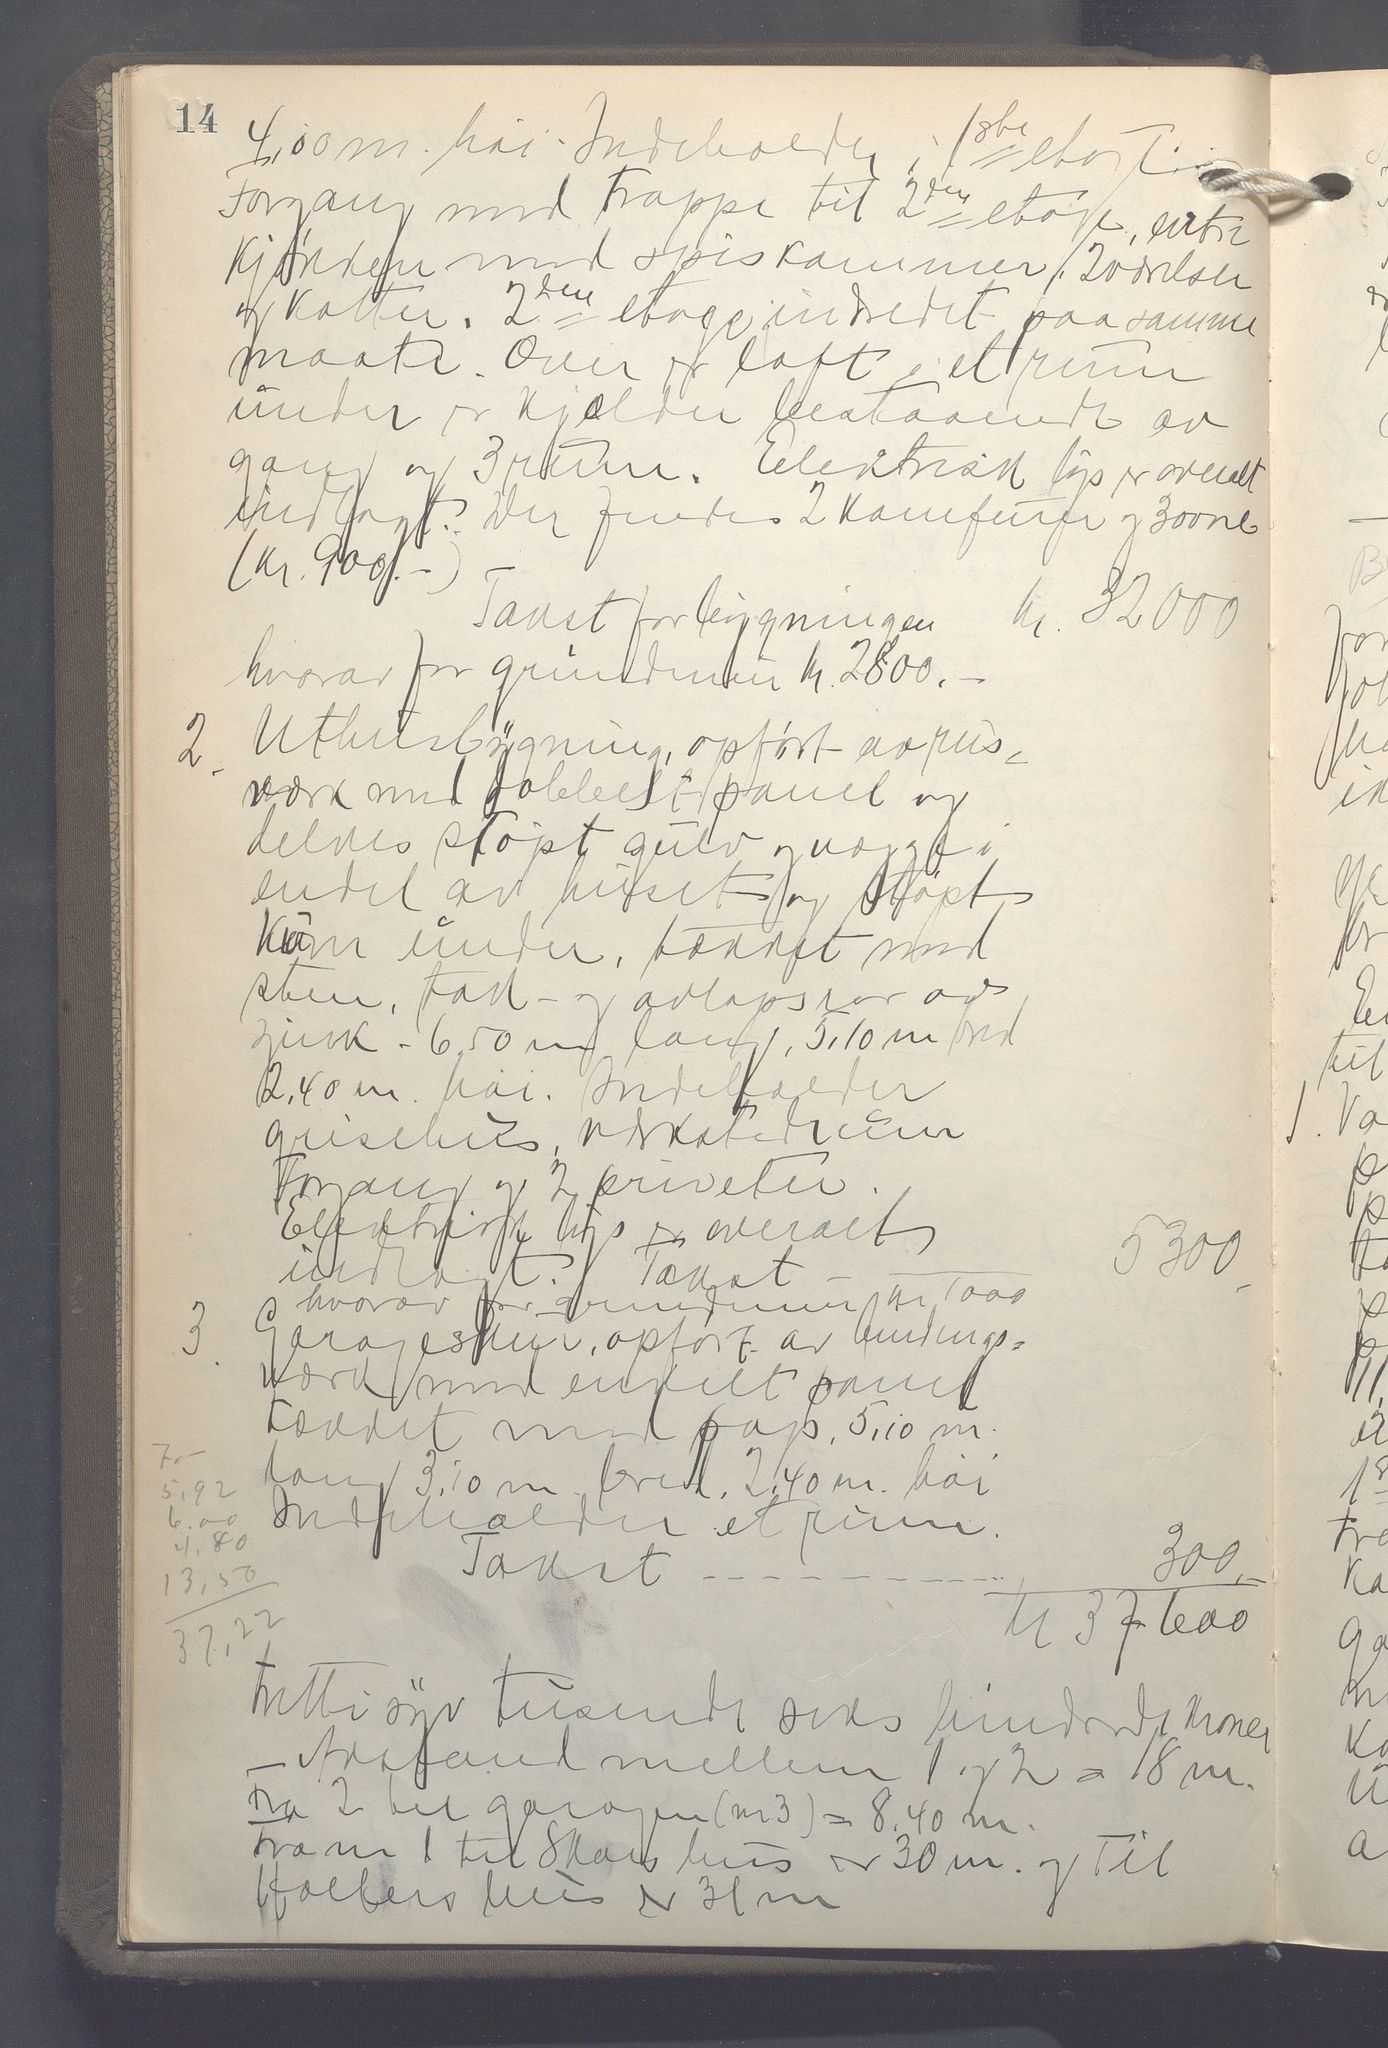 14
4,00 m. høi. Indeholder i 1ste etage:
Forgang med trappe til 2den etage, entre
kjøkken med spiskammer, 2 værelser
og kotter. 2den etage indredet paa samme
maate. Over er loft i et rum
under er kjelder bestaaende av
gang og 3 rum. Elektrisk lys er overalt
indlagt. Der findes 2 komfurer og 3 ovne
(kr. 900.-)
Takst for bygningen kr. 32000
hvorav for grundmur kr. 2800.-
2. Uthusbygning, opført av reis-
verk med dobbelt panel og
deldes støpt gulv og vægge i
endel av huset og støpt
kum under, tækket med
sten, tak- og avløpsrør av
zink - 6,50 m lang, 5,10 m bred
2,40 m. høi. Indeholder
grisehus, verkstedrum
Forgang og 2 priveter.
Elektrisk lys er overalt
indlagt. Takst - 5300,-
hvorav for grundmur kr 1000
3. Garageskur, opført av bindings-
værk med enkelt panel
tækket med pap, 5,10 m.
lang 3,10 m bred, 2,40 m. høi
Indeholder et rum.
Takst ---------- 300,-
kr 37600
7,-
5,92
6,00
4,80
13,50
37,22
tretti syv tusende seks hundrede kroner
- Avstand mellem 1 og 2 = 18 m.
fra 2 til garagen (nr 3) = 8,40 m.
Fra nr 1 til Skars hus er 30 m. og til
hus er 31 m